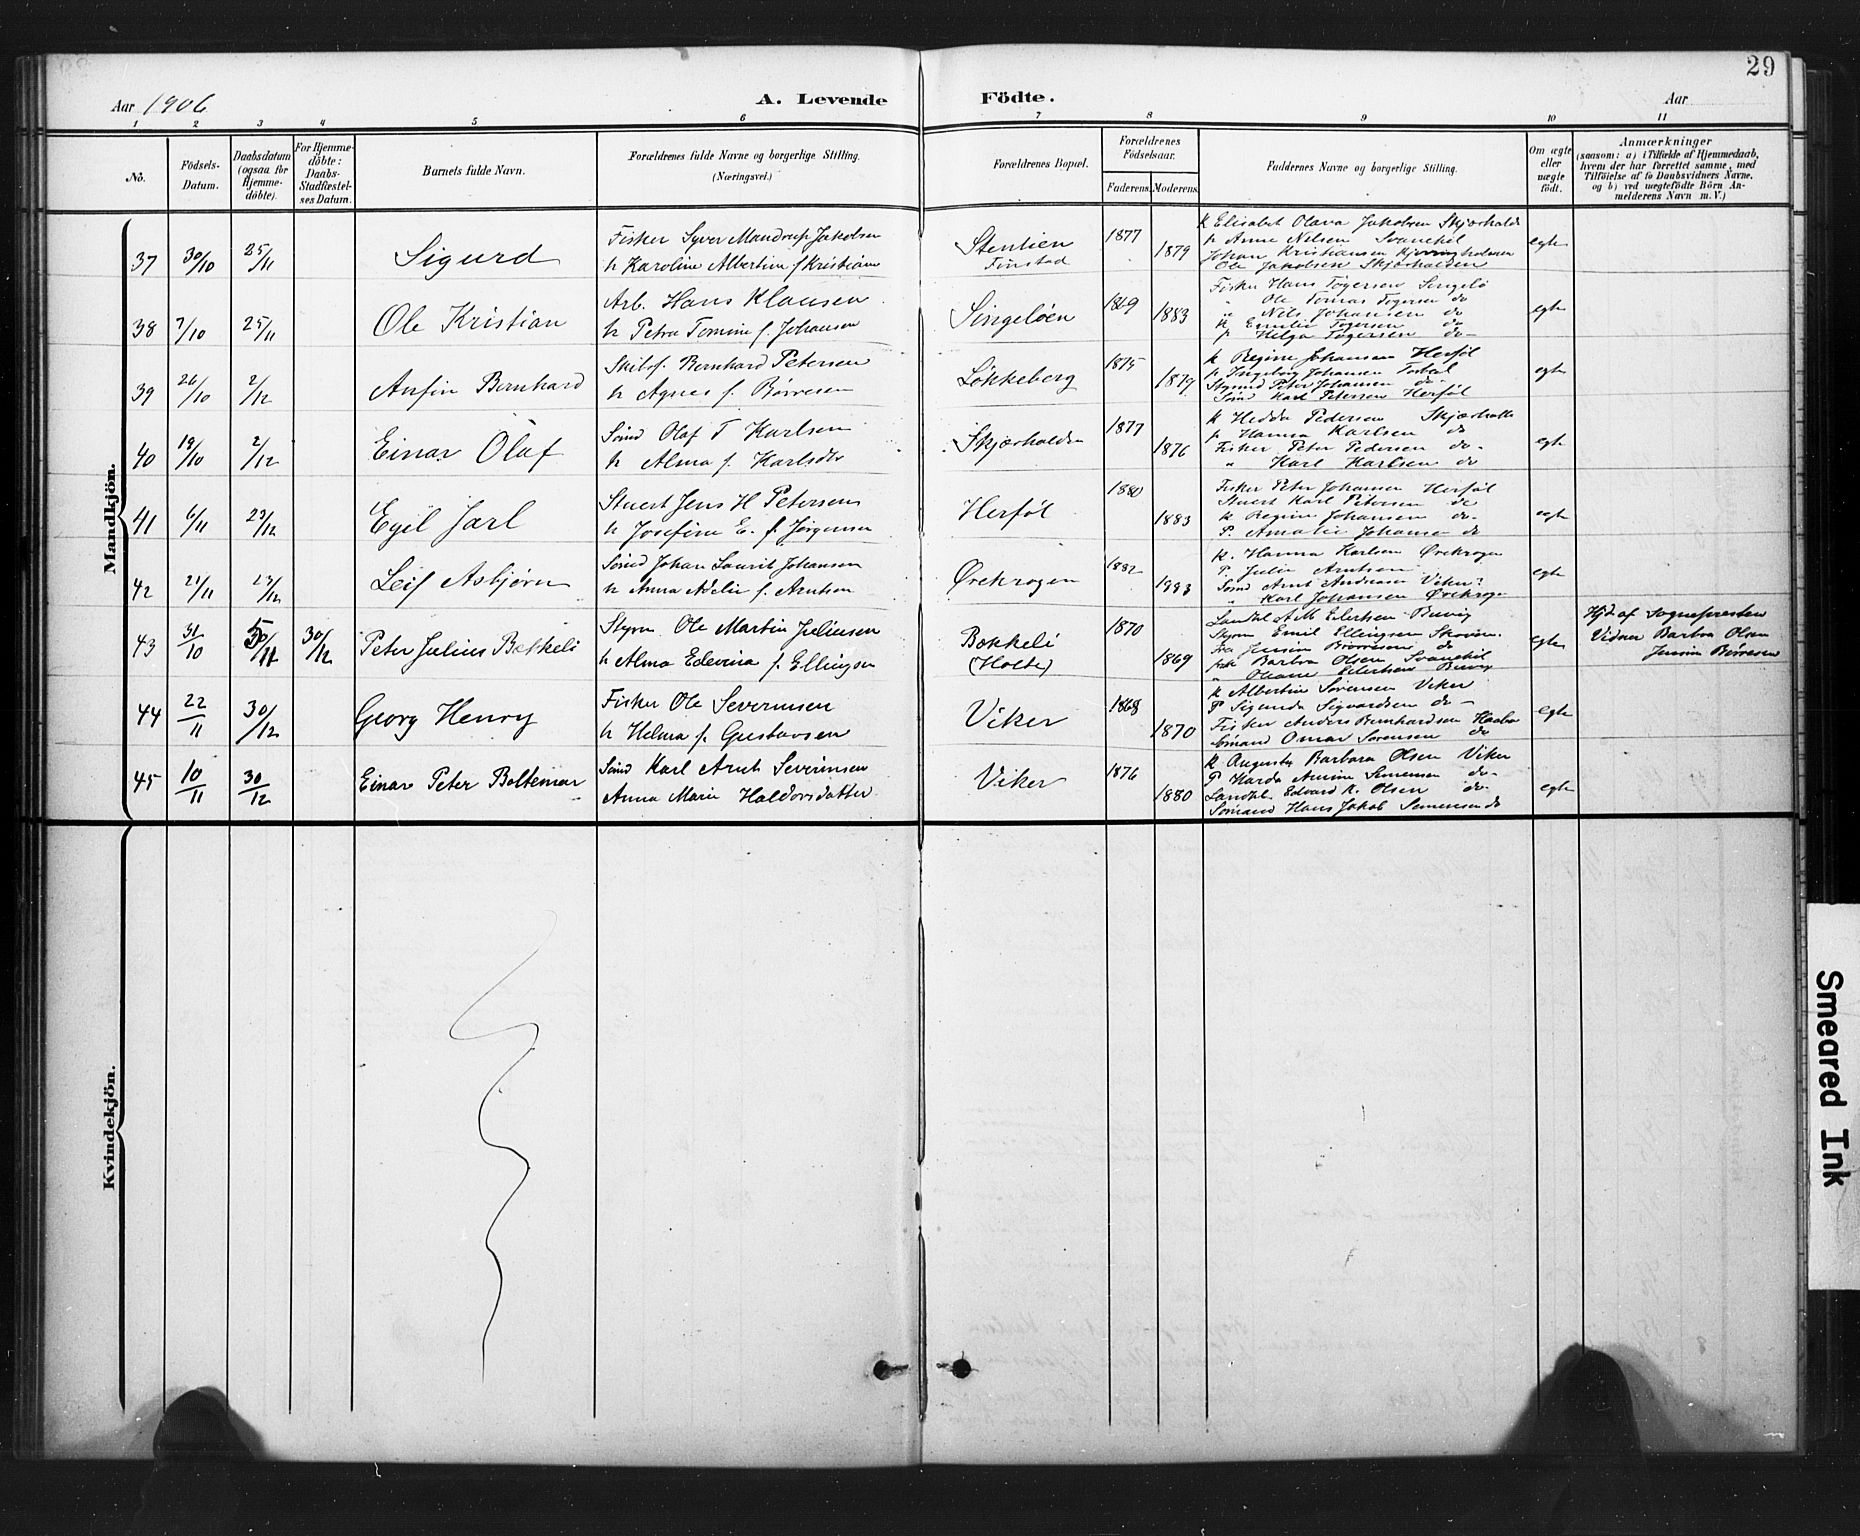 29
Aar 1906
A. Levende
Födte.
Aar
1 2 3 4 5 6 7 8 9 10 11
No.
Födsels-
Datum.
Daabsdatum
(ogsaa for
Hjemme-
döbte).
For Hjemme-
döbte:
Daabs-
Stadfæstel-
ses Datum.
Barnets fulde Navn.
Forældrenes fulde Navne og borgerlige Stilling.
(Næringsvei.)
Forældrenes Bopæl.
Forældrenes
Födselsaar.
Faderens. Moderens.
Faddernes Navne og borgerlige Stilling.
Om ægte
eller
uægte
födt.
Anmærkninger
(saasom: a) i Tilfælde af Hjemmedaab,
hvem der har forrettet samme, med
Tilföielse af to Daabsvidners Navne.
og b) ved uægtefödte Börn An-
melderens Navn m. V.)
Mandkjön.
37 30/10 25/11 Sigurd
Fisker Syver Mandrup Jakobsen
h Karoline Albertine f Kristians
Stentien
Finstad
1877 1879
k Elisabet Olava Jakobsen Skjærhalde
p Anne Nilsen Svanekil
Johan Kristiansen Kjerringholmen
Ole Jakobsen Skjærhalden
egte
38 7/10 25/11 Ole Kristian
Arb. Hans Klausen
h Petra Tomine f. Johansen
Singelöen
1869 1883
Fisker Hans Togersen Singelö
" Ole Tomas Togersen do
" Nils Johansen do
k Emilie Togersen do
p Helga Togersen do
egte
39 26/10 2/12 Anfin Bernhard
Skibsf. Bernhard Petersen
h Agnes f. Börresen
Lökkeberg
1875 1879
k Regine Johansen Herföl
p Ingeborg Johansen
Styrmd Peter Johansen do
Sömd Karl Petersen Herföl
egte
40 19/10 2/12 Einar Olaf
Sömd Olaf T Karlsen
h Alma f. Karlsdtr
Skjærhalden
1877 1876
k Hedda Pedersen Skjærhalle
p Hanna Karlsen do
Fisker Peter Pedersen do
" Karl Karlsen do
egte
41 6/11 23/12 Egil Jarl
Stuert Jens H Petersen
h Josefine E. f Jörgensen
Herföl
1880 1883
Fisker Peter Johansen Herföl
Stuert Karl Petersen do
k Regine Johansen do
P. Amalie Johansen do
egte
42 21/11 23/12 Leif Asbjørn
Sömd Johan Laurit Johansen
h Anna Adelie f. Arntsen
Ørekrogen
1882 1883
k. Hanna Karlsen Ørekrogen
P. Julie Arntsen
Sömd Arnt Andreasen Viker
" Karl Johansen Ørekrogen
egte
43 31/10 30/12 Peter Julius Bekkeli
Styrm Ole Martin Juliusen
h Alma Edevina f. Ellingsen
Bekkeli
(Holte)
1870 1869
Landhl A M Eilertsen Buvig
Styrm Emil Ellingsen
Fru Jensine Börresen do
Barbra Olsen Svanekil
" Oleane Eilertsen Buvig
egte
Hjd. af Sognepresten
Vidner Barbra Olsen
Jensine Börresen
44 22/11 30/12 Georg Henry
Fisker Ole Severinsen
h Helma f. Gustavsen
Viker
1868 1870
k Albertine Sörensen Viker
P Sigunda Sigvardsen do
Fisker Anders Bernhardsen
Sömand Omar Sörensen do
egte
45 10/11 30/12 Einar Peter Boltemar
Sömd Karl Arnt Severinsen
Anna Marie Haldorsdatter
Viker
1876 1880
k Augusta Barbara Olsen Viker
P Harda Amine Simensen do
Landhl. Edvard K. Olsen do
Sömand Hans Jakob Simensen do
egte
Kvindekjön.
Smeared Ink